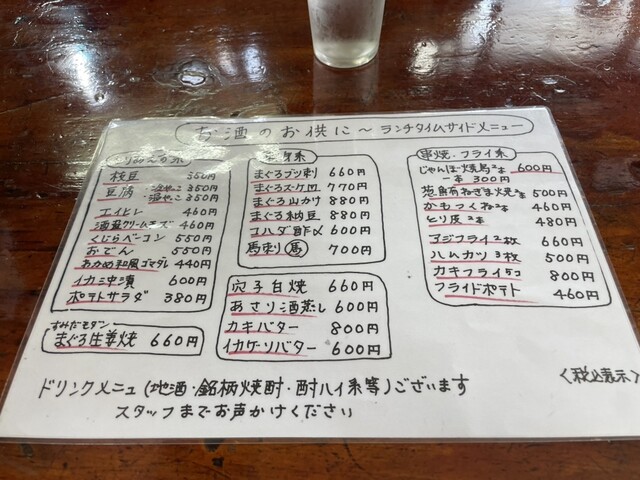 お酒のお供に～ランチタイムサイドメニュー
枝豆 350円
豆腐 冷やっこ 350円
エイヒレ 460円
酒盗クリームチーズ 460円
くじらベーコン 550円
おでん 550円
わかめ和風ゴマダレ 440円
イカ沖漬 600円
ポテトサラダ 380円
すみだモダン
まぐろ生姜焼 660円
まぐろブツ刺 660円
まぐろズケ凹 770円
まぐろ山かけ 880円
まぐろ納豆 880円
コハダ酢〆 600円
馬刺し 馬 700円
穴子白焼 660円
あさり酒蒸し 600円
カキバター 800円
イカゲソバター 600円
串焼・フライ系
じゃんぼ焼鳥2本 600円
一本 300円
葱鮪ねぎま焼2本 500円
かもつくね2本 460円
とり皮2本 480円
アジフライ2枚 660円
ハムカツ3枚 500円
カキフライ5コ 800円
フライドポテト 460円
ドリンクメニュー(地酒・銘柄焼酎・酎ハイ系等)ございます
スタッフまでお声かけください
〈税込表示〉